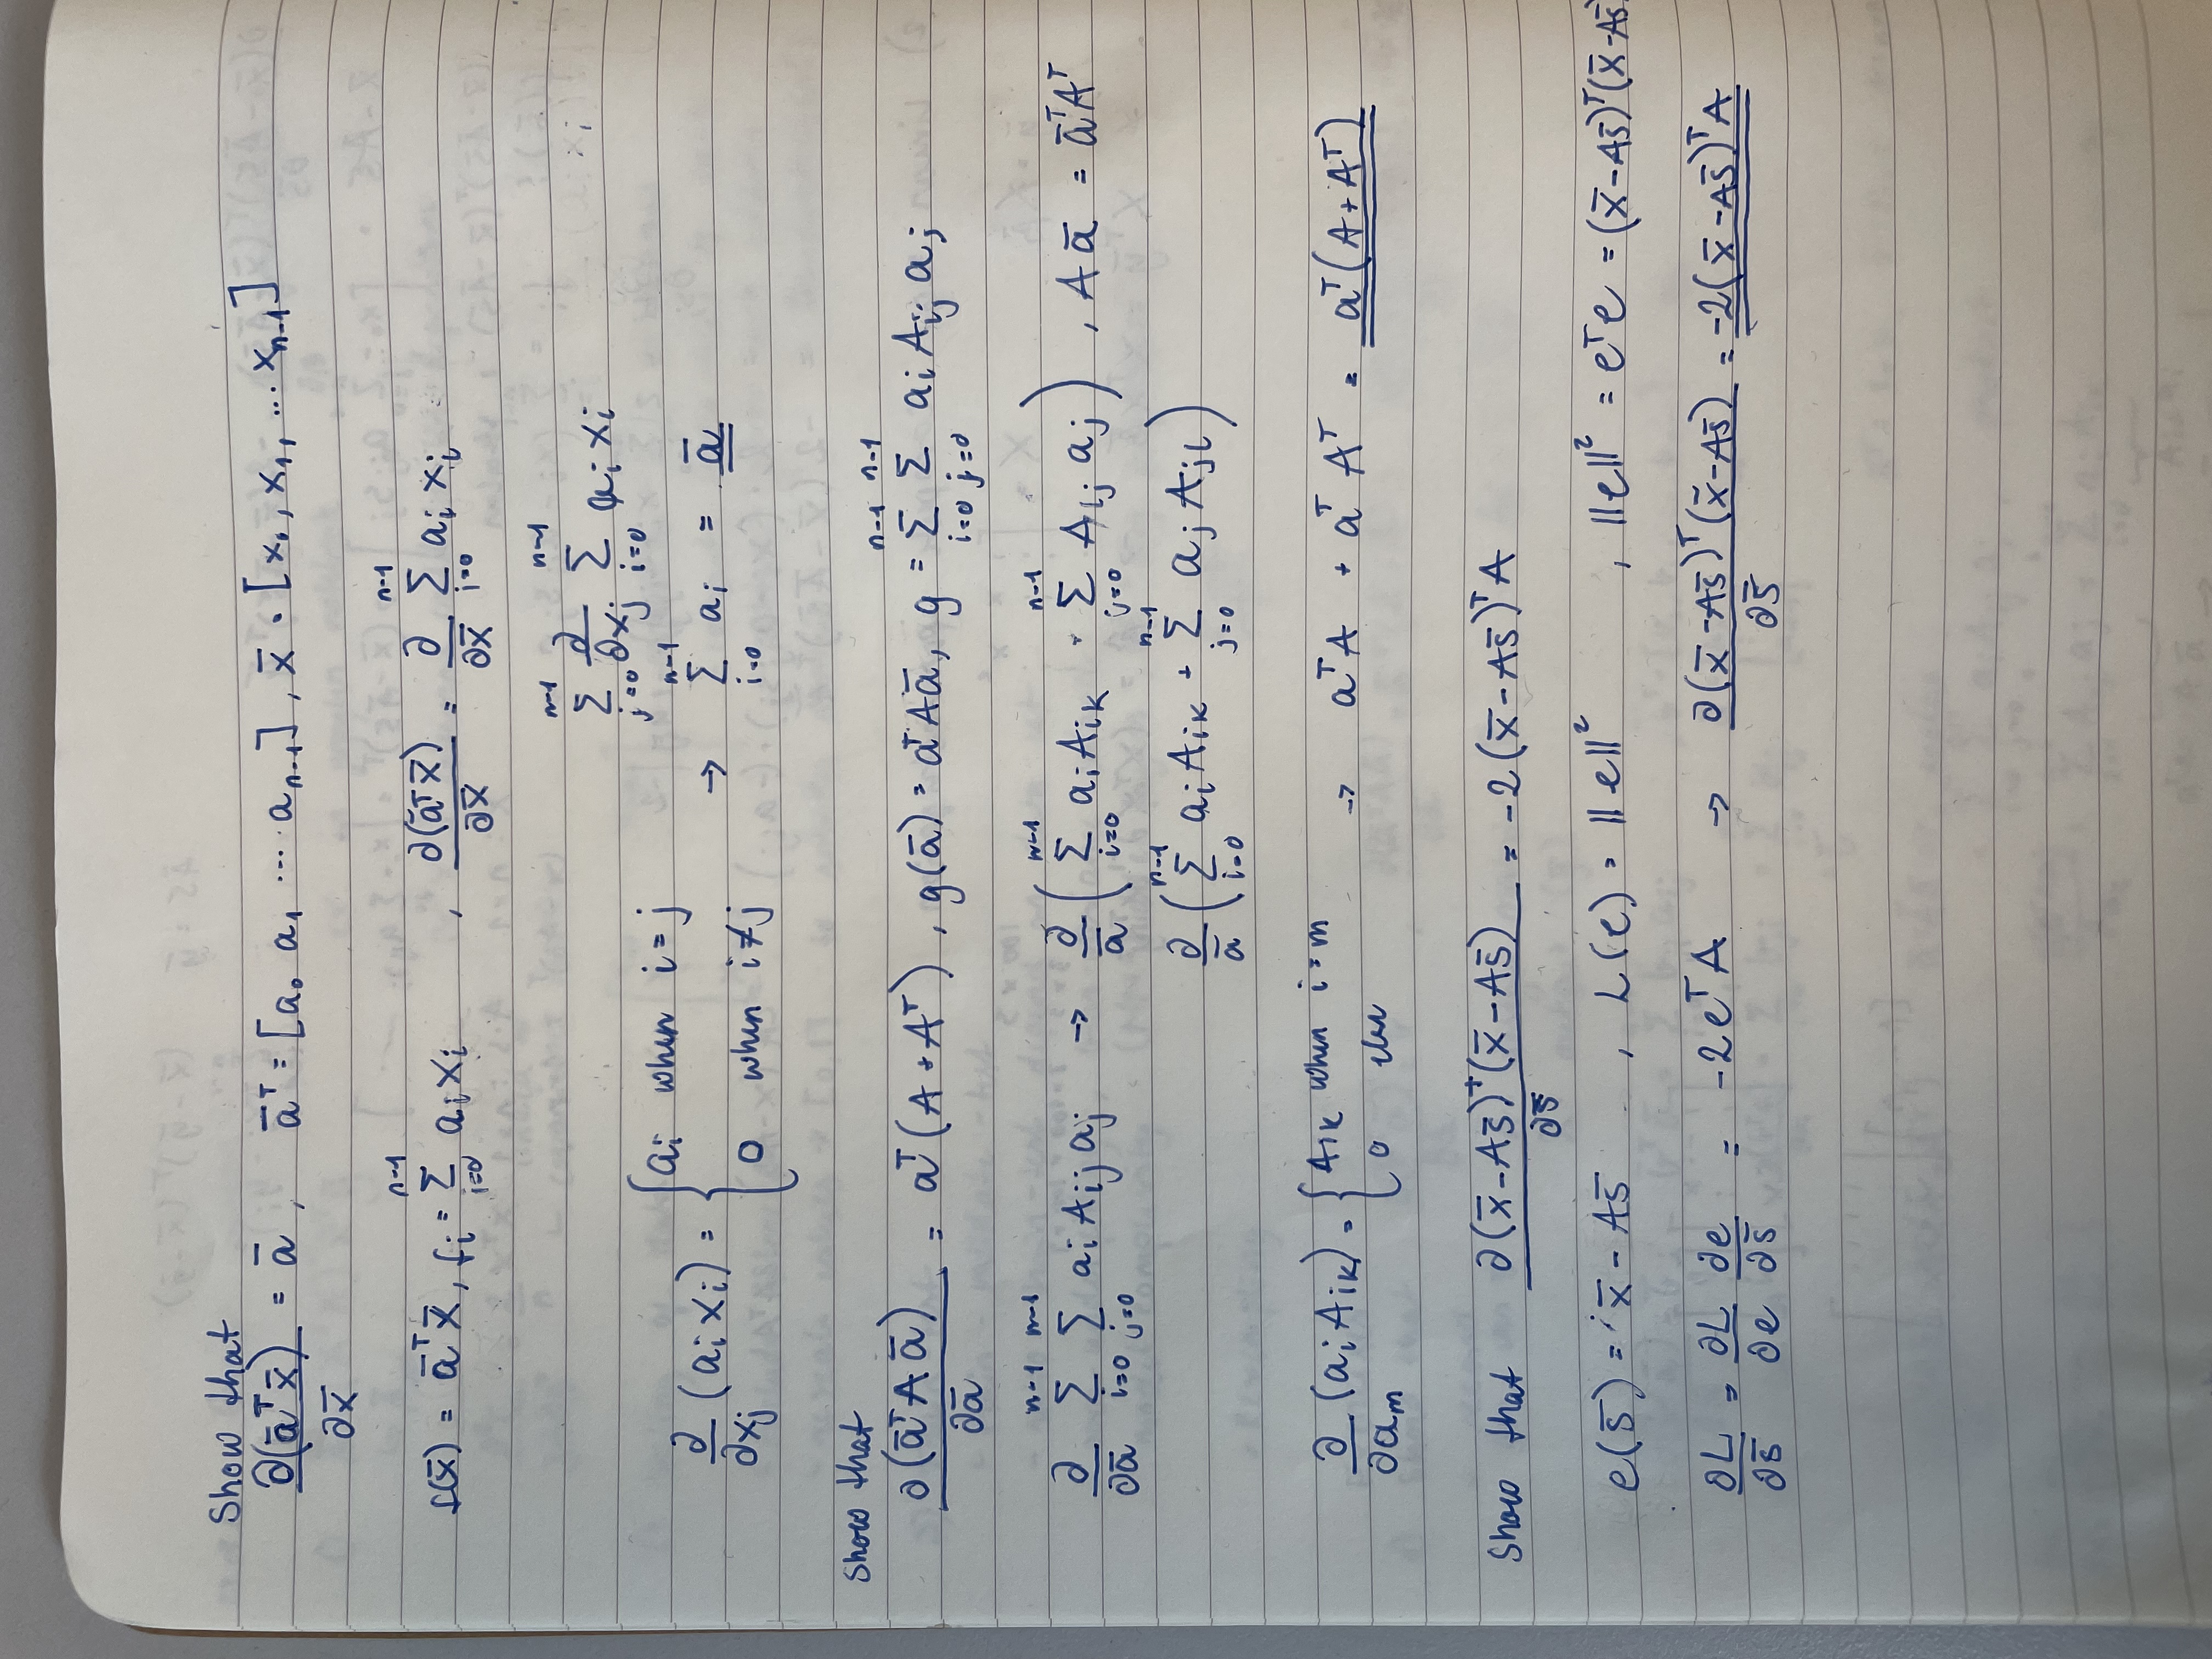 Show that
∂(a̅ᵀx̅)/∂x̅ = a̅ , a̅ᵀ = [a₀ a₁ ... aₙ₋₁], x̅ = [x₀, x₁, ... xₙ₋₁]
f(x̅) = a̅ᵀx̅, fᵢ = Σ_{i=0}^{n-1} aᵢxᵢ , ∂(a̅ᵀx̅)/∂x̅ = ∂/∂x̅ Σ_{i=0}^{n-1} aᵢxᵢ
Σ_{j=0}^{n-1} ∂/∂xⱼ Σ_{i=0}^{n-1} aᵢxᵢ
∂/∂xⱼ (aᵢxᵢ) = { aᵢ when i = j
0 when i ≠ j → Σ_{i=0}^{n-1} aᵢ = a̅
Show that
∂(a̅ᵀAa̅)/∂a̅ = aᵀ(A + Aᵀ), g(a̅) = aᵀAa̅, g = Σ_{i=0}^{n-1} Σ_{j=0}^{n-1} aᵢAᵢⱼaⱼ
∂/∂a̅ Σ_{i=0}^{n-1} Σ_{j=0}^{n-1} aᵢAᵢⱼaⱼ → ∂/a̅ (Σ_{i=0}^{n-1} aᵢAᵢₖ + Σ_{j=0}^{n-1} Aₗⱼaⱼ) , Aa̅ = a̅ᵀAᵀ
∂/a̅ (Σ_{i=0}^{n-1} aᵢAᵢₖ + Σ_{j=0}^{n-1} aⱼAⱼₗ)
∂/∂aₘ (aᵢAᵢₖ) = { Aᵢₖ when i = m
0 → aᵀA + aᵀAᵀ = aᵀ(A + Aᵀ)
Show that ∂(x̅-As̅)ᵀ(x̅-As̅)/∂s̅ = -2(x̅-As̅)ᵀA
e(s̅) = x̅ - As̅ , L(e) = ||e||² , ||e||² = eᵀe = (x̅-As̅)ᵀ(x̅-As̅
∂L/∂s̅ = ∂L/∂e ∂e/∂s̅ = -2eᵀA → ∂(x̅-As̅)ᵀ(x̅-As̅)/∂s̅ = -2(x̅-As̅)ᵀA